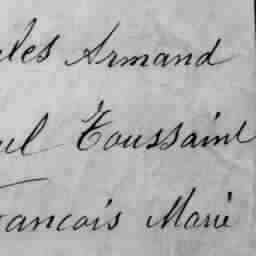 les Armand
ul Toussaint
rancois Marie